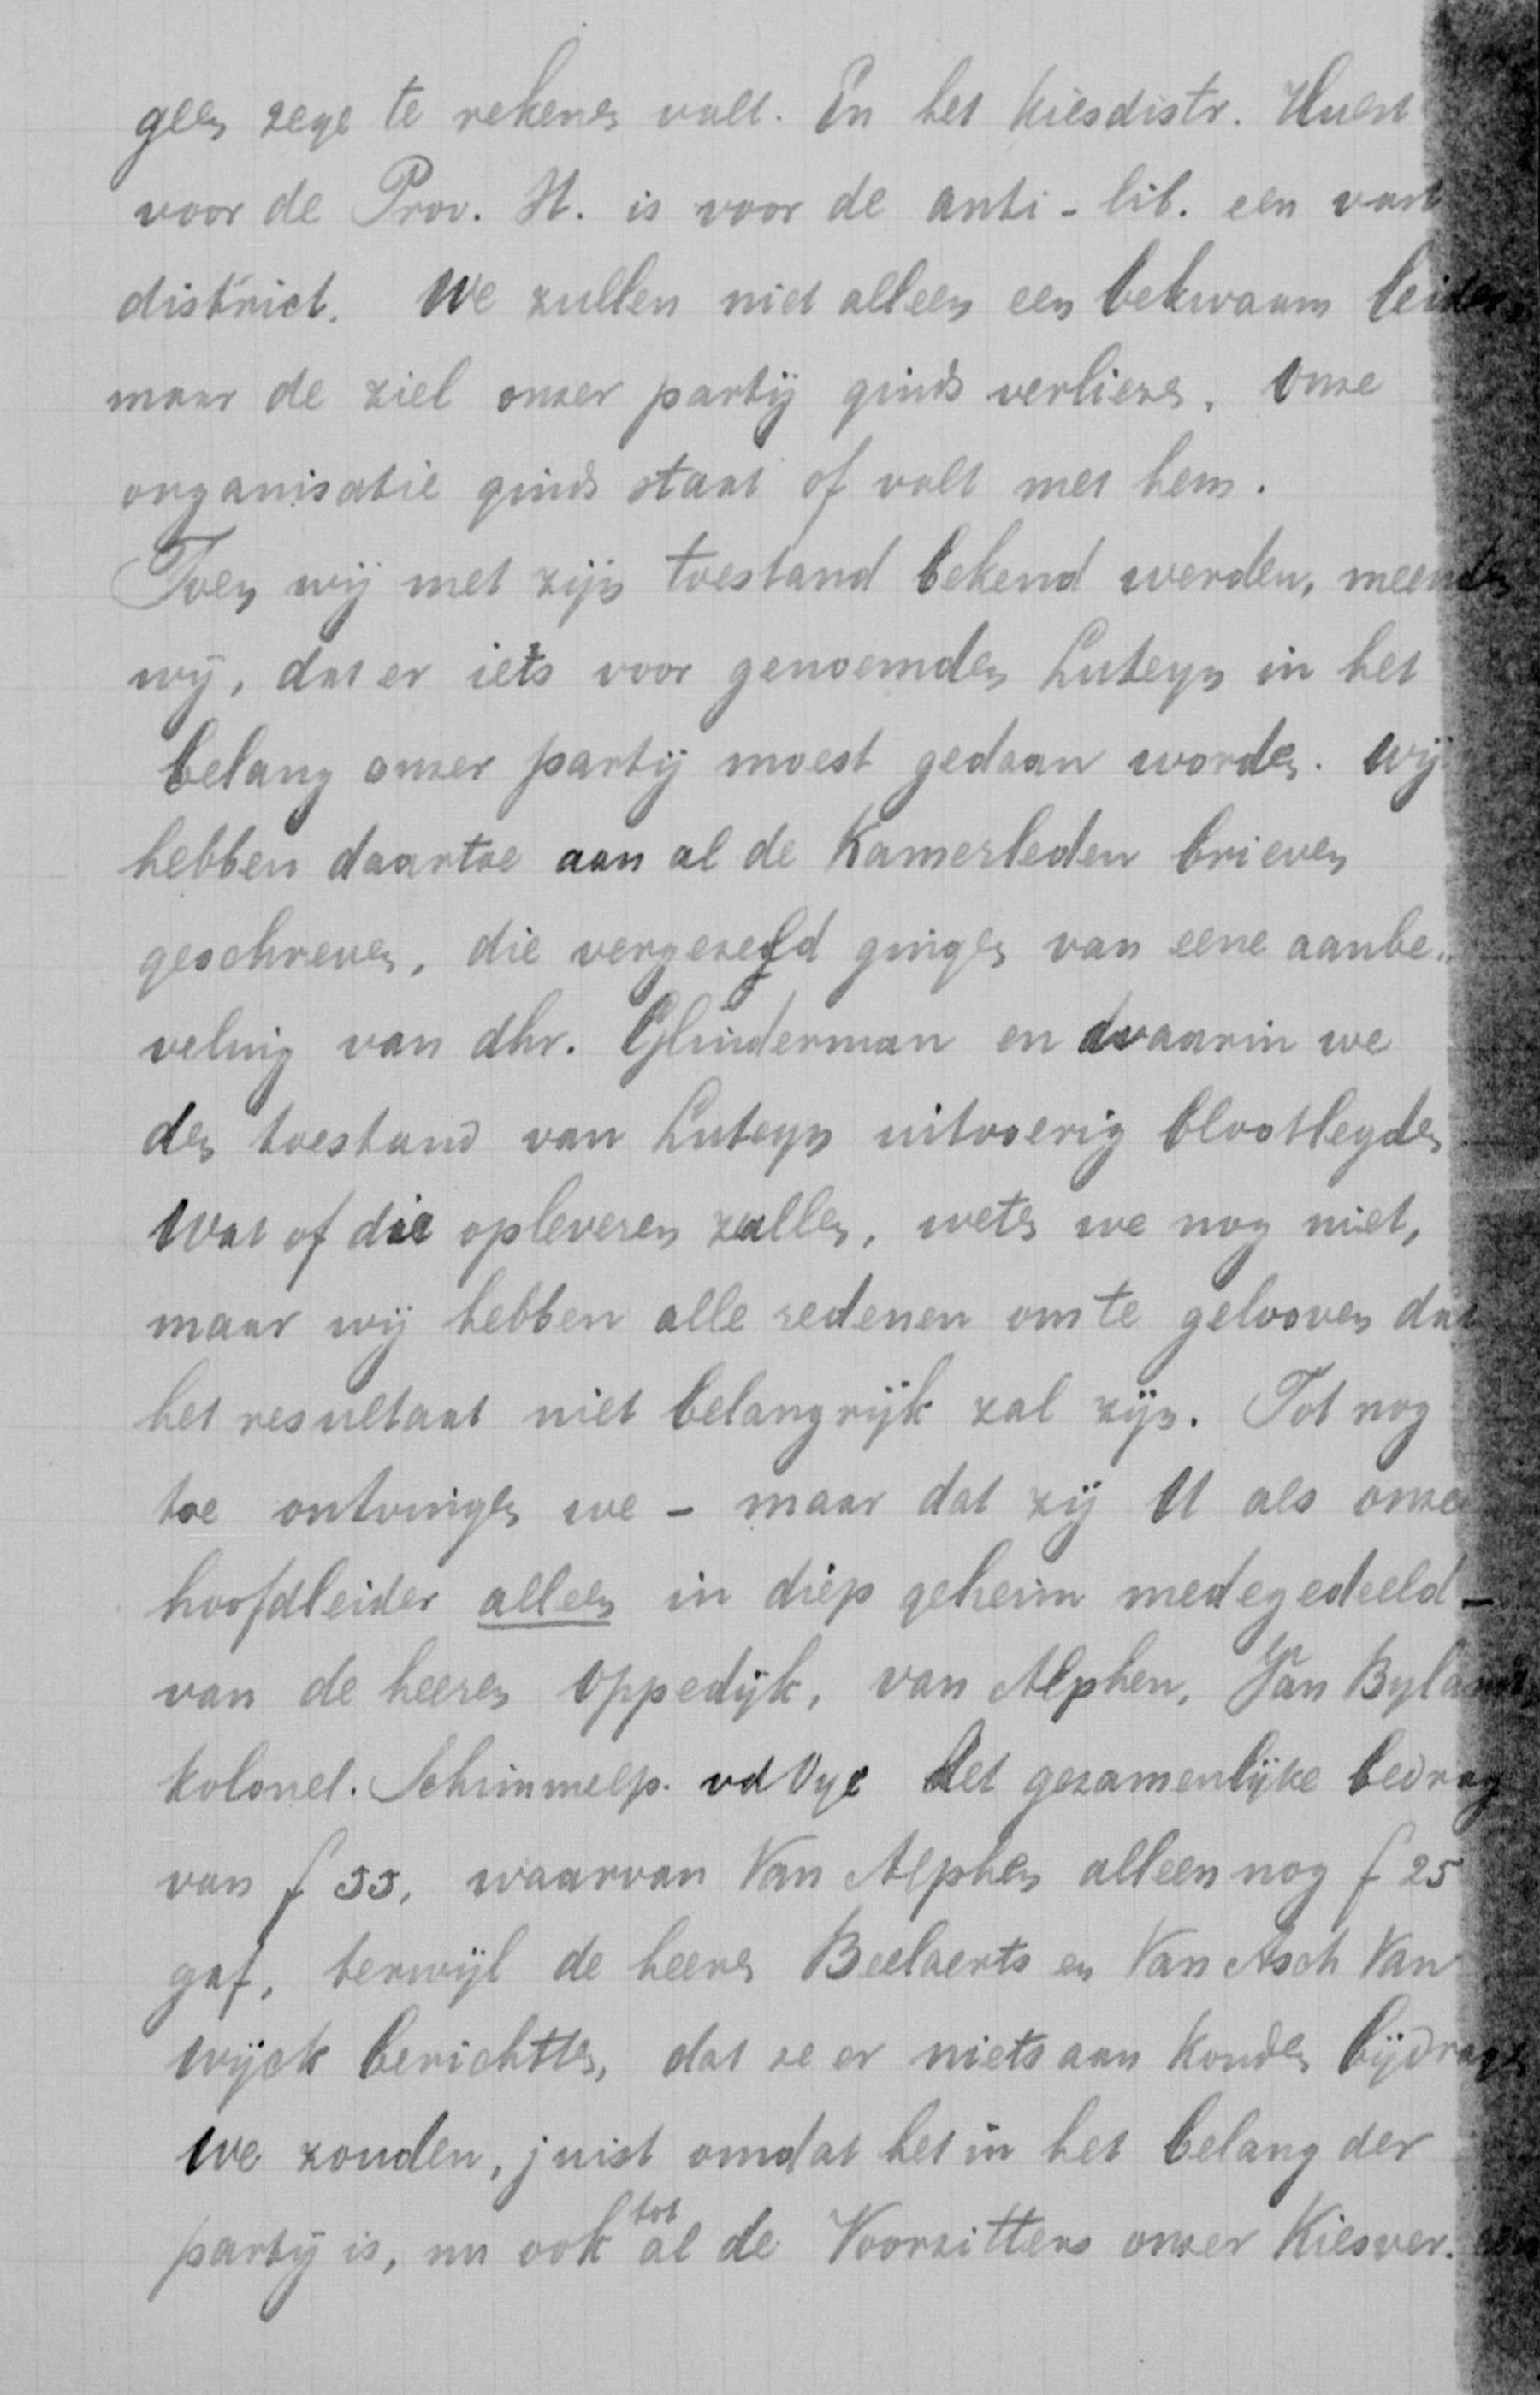 geen zege te rekenen valt. En het Kiesdistr. Hulst
voor de Prov. St. is voor de anti-lib. een vast
district. We zullen niet alleen een bekwaam leider,
maar de ziel onzer partij ginds verliezen. Onze
organisatie ginds staat of valt met hem.
Toen wij met zijn toestand bekend werden, meenden
wij, dat er iets voor genoemden Luteyn in het
belang onzer partij moest gedaan worden. Wij
hebben daartoe aan al de Kamerleden brieven
geschreven, die vergezeld gingen van eene aanbe-
veling van dhr. Glinderman en waarin we
den toestand van Luteyn uitvoerig blootlegden
Wat of die opleveren zullen, weten we nog niet,
maar wij hebben alle redenen om te gelooven dat
het resultaat niet belangrijk zal zijn. Tot nog
toe ontvingen we - maar dat zij U als onze
hoofdleider alleen in diep geheim medegedeeld -
van de heeren Oppedijk, van Alphen, Van Bylandt,
kolonel. Schimmelp. vd Oye het gezamenlijke bedrag
van f 55, waarvan Van Alphen alleen nog f 25
gaf, terwijl de heeren Beelaerts en Van Asch Van
Wijck berichtten, dat ze er niets aan konden bijdragen
We zouden, juist omdat het in het belang der
partij is, nu ook tot al de Voorzitters onzer Kiesver.